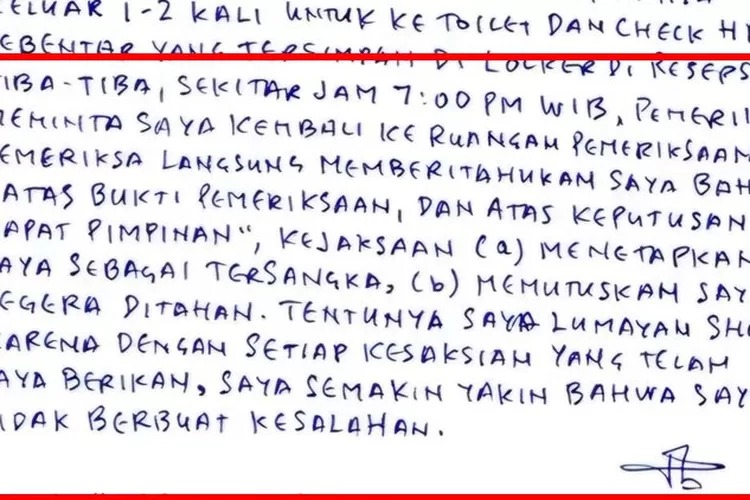 ELUAR 1-2 KALI UNTUK KE TOILET DAN CHECK H
EBENTAR YANG TERSIMPAN DI LOCKER DI RESEPS
TIBA-TIBA, SEKITAR JAM 7:00 PM WIB, PEMERI
MEMINTA SAYA KEMBALI KE RUANGAN PEMERIKSAAN
EMERIKSA LANGSUNG MEMBERITAHUKAN SAYA BAH
ATAS BUKTI PEMERIKSAAN, DAN ATAS KEPUTUSAN
APAT PIMPINAN", KEJAKSAAN (a) MENETAPKAN
AYA SEBAGAI TERSANGKA, (b) MEMUTUSKAN SAY
EGERA DITAHAN. TENTUNYA SAYA LUMAYAN SH
KARENA DENGAN SETIAP KESAKSIAN YANG TELAH
AYA BERIKAN, SAYA SEMAKIN YAKIN BAHWA SAY
IDAK BERBUAT KESALAHAN.